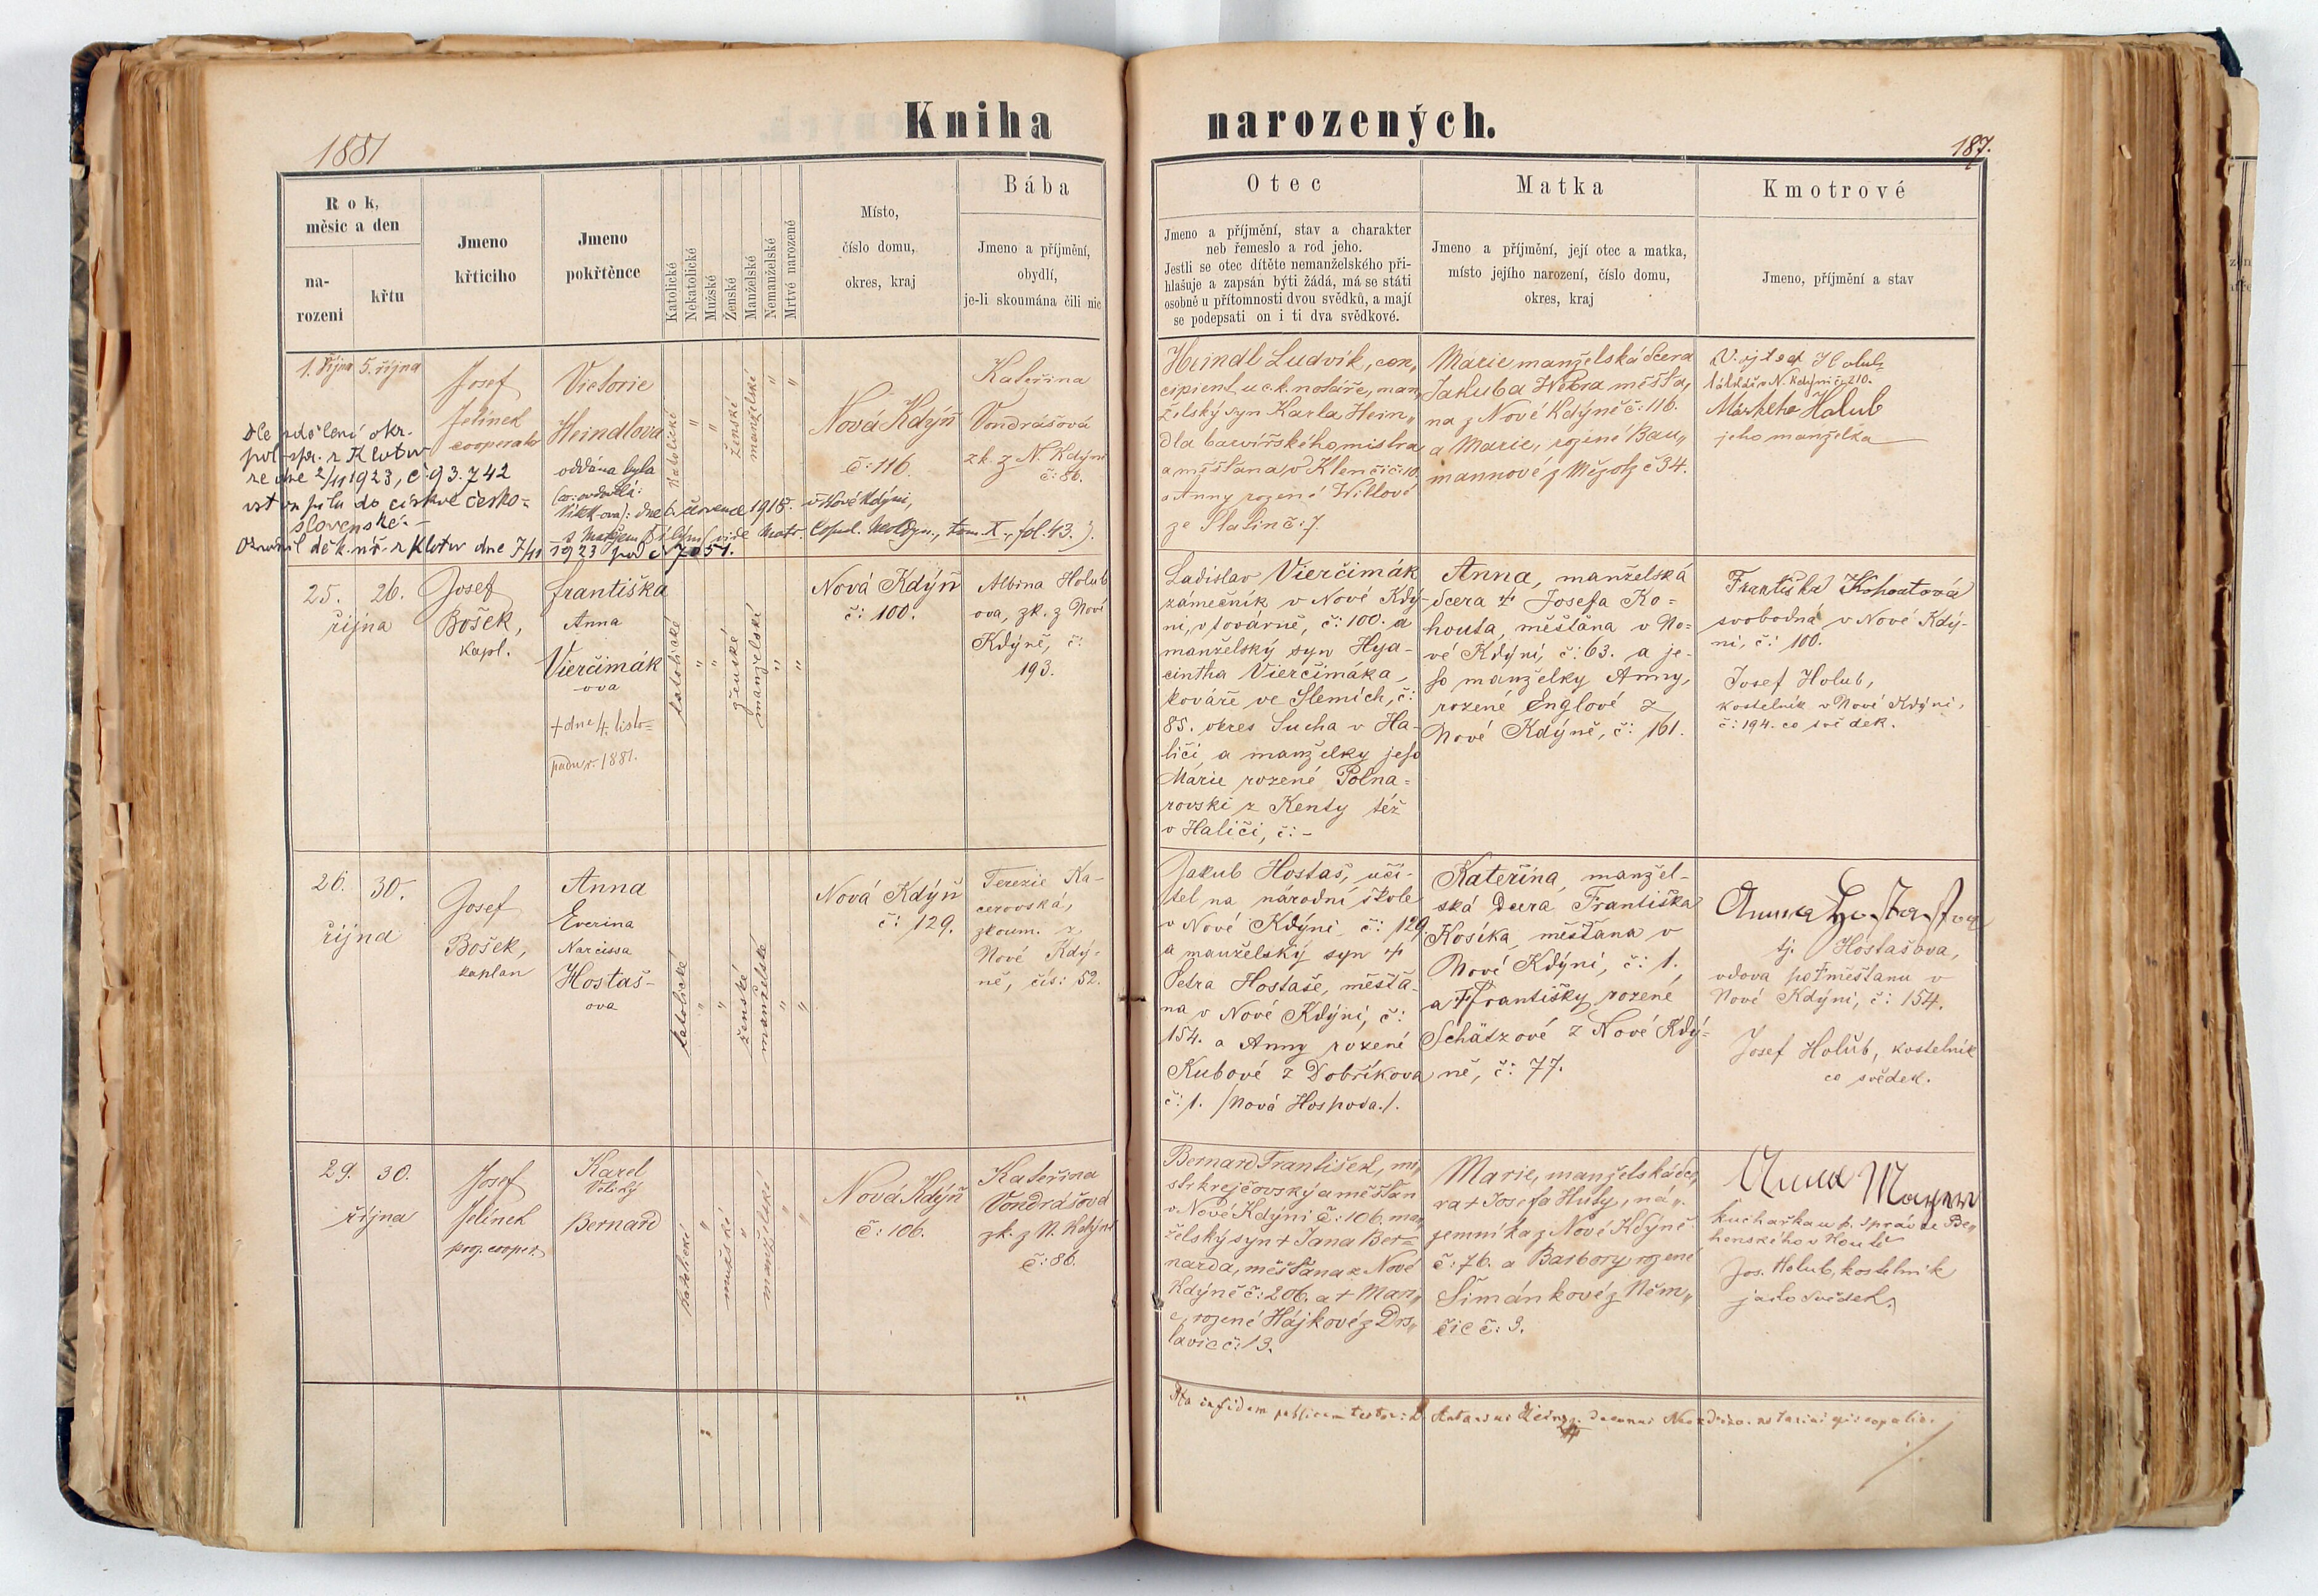 Kniha narozených.
1881
187.
Rok,
měsíc a den
na-
rozeni
křtu
Jmeno
křticiho
Jmeno
pokřtěnce
Katolické
Nekatolické
Mužské
Ženské
Manželské
Nemanželské
Mrtvé narozené
Místo,
číslo domu,
okres, kraj
Bába
Jmeno a příjmění,
obydlí,
je-li skoumána čili nic
Otec
Jmeno a příjmění, stav a charakter
neb řemeslo a rod jeho.
Jestli se otec dítěte nemanželského při-
hlašuje a zapsán býti žádá, má se státi
osobně u přítomnosti dvou svědků, a mají
se podepsati on i ti dva svědkové.
Matka
Jmeno a příjmění, její otec a matka,
místo jejího narození, číslo domu,
okres, kraj
Kmotrové
Jmeno, příjmění a stav
1. října
5. října
Josef
Jelínek
cooperator
Victorie
Heindlova
oddána byla
dne 6. července 1918. v Nové Kdýni,
tom. X., fol. 43.).
Dle sdělení okr.
pol. spr. z Klatov
ze dne 2/11 1923, č. 93.742
vstoupila do církve česko-
slovenské. –
dne 7/11 1923 pod č. 7051.
katolické
"
"
ženské
manželské
"
"
Nová Kdýň
č: 116.
Kateřina
Vondrášová
zk. z N. Kdýni
č: 86.
Heindl Ludvík, con„
cipient u c.k. notáře, man„
želský syn Karla Hein„
dla barvířského mistra
a měšťana v Klenčí č: 10.
a Anny rozené Wiltové
č: 7.
Marie manželská dcera
Jakuba Webra měšťa„
na z Nové Kdýně č: 116.
a Marie, rozené Bau„
mannové z č 34.
Holub
v N. Kdýni č: 210.
Markéta Holub
jeho manželka
25.
26.
října
Josef
Bošek,
kapl.
Františka
Anna
Vierčimák
ova
+ dne 4. listo=
padu r. 1881.
katolické
"
"
ženské
manželská
"
"
Nová Kdýň
č: 100.
Albina Holub
ova, zk. z Nové
Kdýně, č:
193.
Ladislav Vierčimák
zámečník v Nové Kdý-
ni, v továrně, č: 100. a
manželský syn Hya-
cintha Vierčimáka,
kováře ve Slemich, č:
85. okres Sucha v Ha-
liči, a manželky jeho
Marie rozené Polna-
rovski z Kenty též
v Haliči, č: –
Anna, manželská
dcera + Josefa Ko=
houta, měšťana v No=
vé Kdýni, č: 63. a je-
ho manželky Anny,
rozené Englové z
Nové Kdýně, č: 161.
Františka Kohoutová
svobodná v Nové Kdý-
ni, č: 100.
Josef Holub,
kostelník v Nové Kdýni,
č: 194. co svědek.
26.
30.
října
Josef
Bošek,
kaplan
Anna
Everina
Narcissa
Hostaš-
ova
katolické
"
"
ženské
manželské
"
"
Nová Kdýň
č: 129.
Terezie Ka-
cerovská,
zkoum. z
Nové Kdý-
ně, čís: 52.
Jakub Hostaš, uči-
tel na národní škole
v Nové Kdýni č: 129
a manželský syn +
Petra Hostaše, měšťa-
na v Nové Kdýni, č:
154. a Anny rozené
Kubové z Dobříkova
č: 1. /Nová Hospoda./.
Kateřina, manžel-
ská dcera Františka
Kosíka, měšťana v
Nové Kdýni, č: 1.
a Františky rozené
Schätzové z Nové Kdý-
ně, č: 77.
Anna Hostašova
tj. Hostašova,
vdova po + měšťanu v
Nové Kdýni, č: 154.
Josef Holub, kostelník
co svědek.
29.
30.
října
Josef
Jelínek
cooper.
Karel
Veliký
Bernard
katolické
"
mužské
"
manželské
"
"
Nová Kdýň
č: 106.
Kateřina
Vondrášová
zk. z N. Kdýni
č: 86.
Bernard František, mi„
str krejčovský a měšťan
v Nové Kdýni č: 106. man„
želský syn + Jana Ber=
narda, měšťana z Nové
Kdýně č: 206. a + Mari„
e, rozené Hájkové z Drs„
lavic č: 13.
Marie, manželská dce„
ra + Josefa Huty, ná„
jemníka z Nové Kdýně
č: 76. a Barbory rozené
Šimánkové z Něm„
čic č: 3.
Anna Mayer
kuchařka u p. správce
Jos. Holub, kostelník
jako svědek.
"
"
Ita in fidem publicam testor: